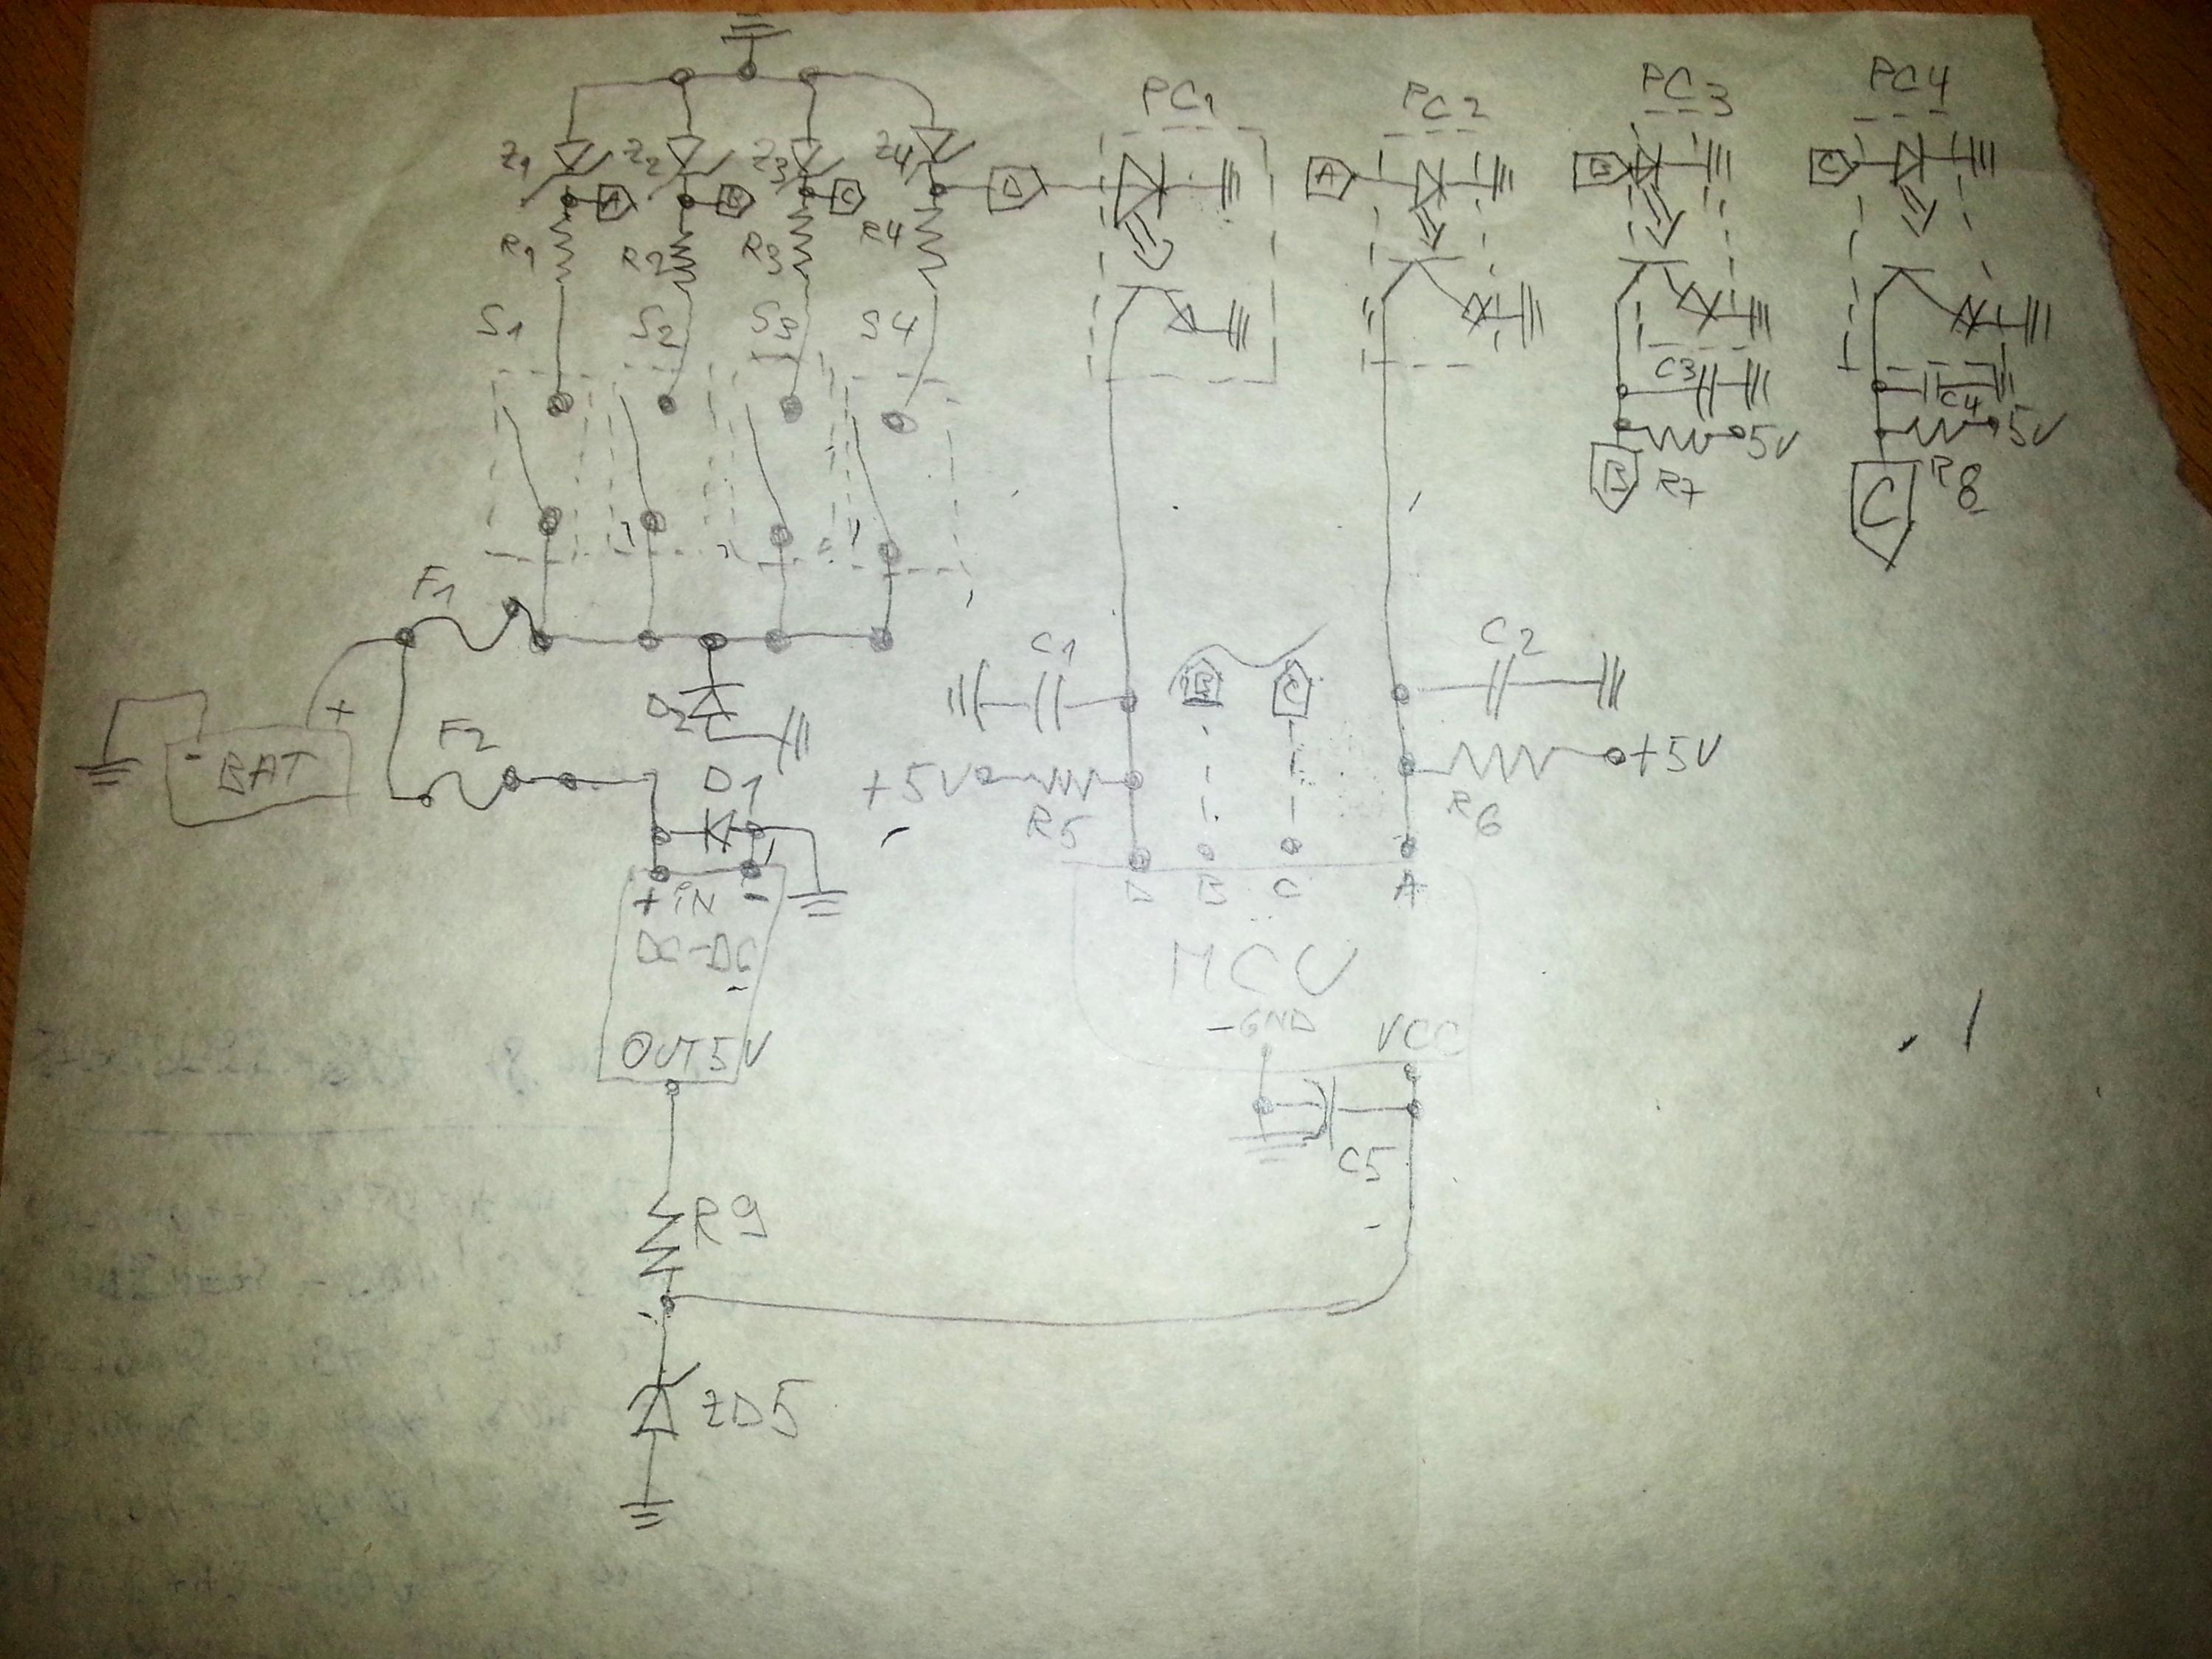 PC1 PC2 PC3 PC4
Z1 Z2 Z3 Z4
A B C D A B C
R1 R2 R3 R4
S1 S2 S3 S4
C3 C4
5V 5V
B R7 C R8
F1
C1 B C C2
+ D2
- BAT F2 D1 +5V +5V
R5 R6
+ iN - D B C A
DC-DC MCU
-GND VCC
OUT 5V
C5
R9
ZD5